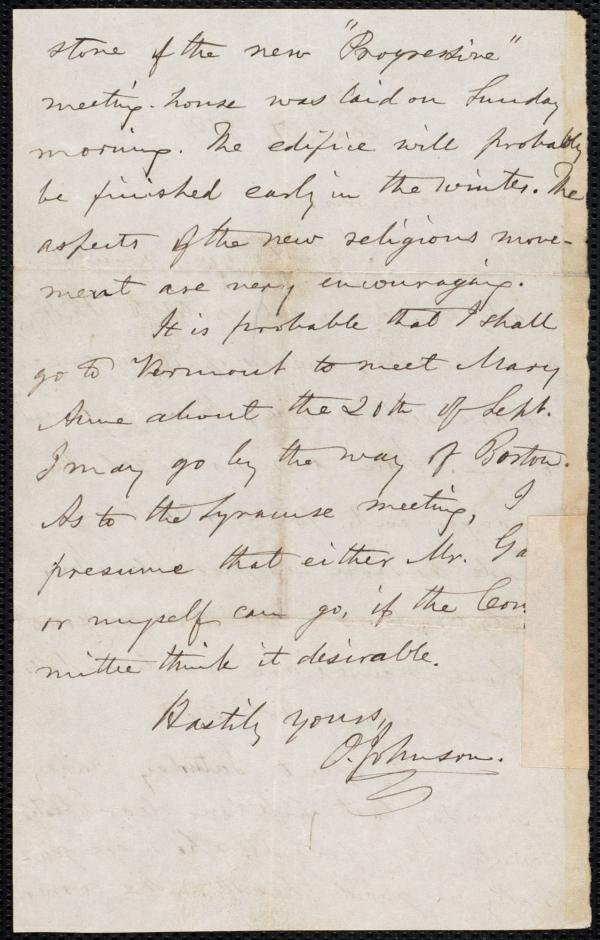 stone of the new "Progressive"
meeting-house was laid on Sunday
morning. The edifice will probably
be finished early in the winter. The
aspects of the new religious move-
ment are very encouraging.
It is probable that I shall
go to Vermont to meet Mary
Anne about the 20th of Sept.
I may go by the way of Boston.
As to the Syracuse meeting, I
presume that either Mr. Ga
or myself can go, if the Com
mittee think it desirable.
Hastily yours,
O. Johnson.